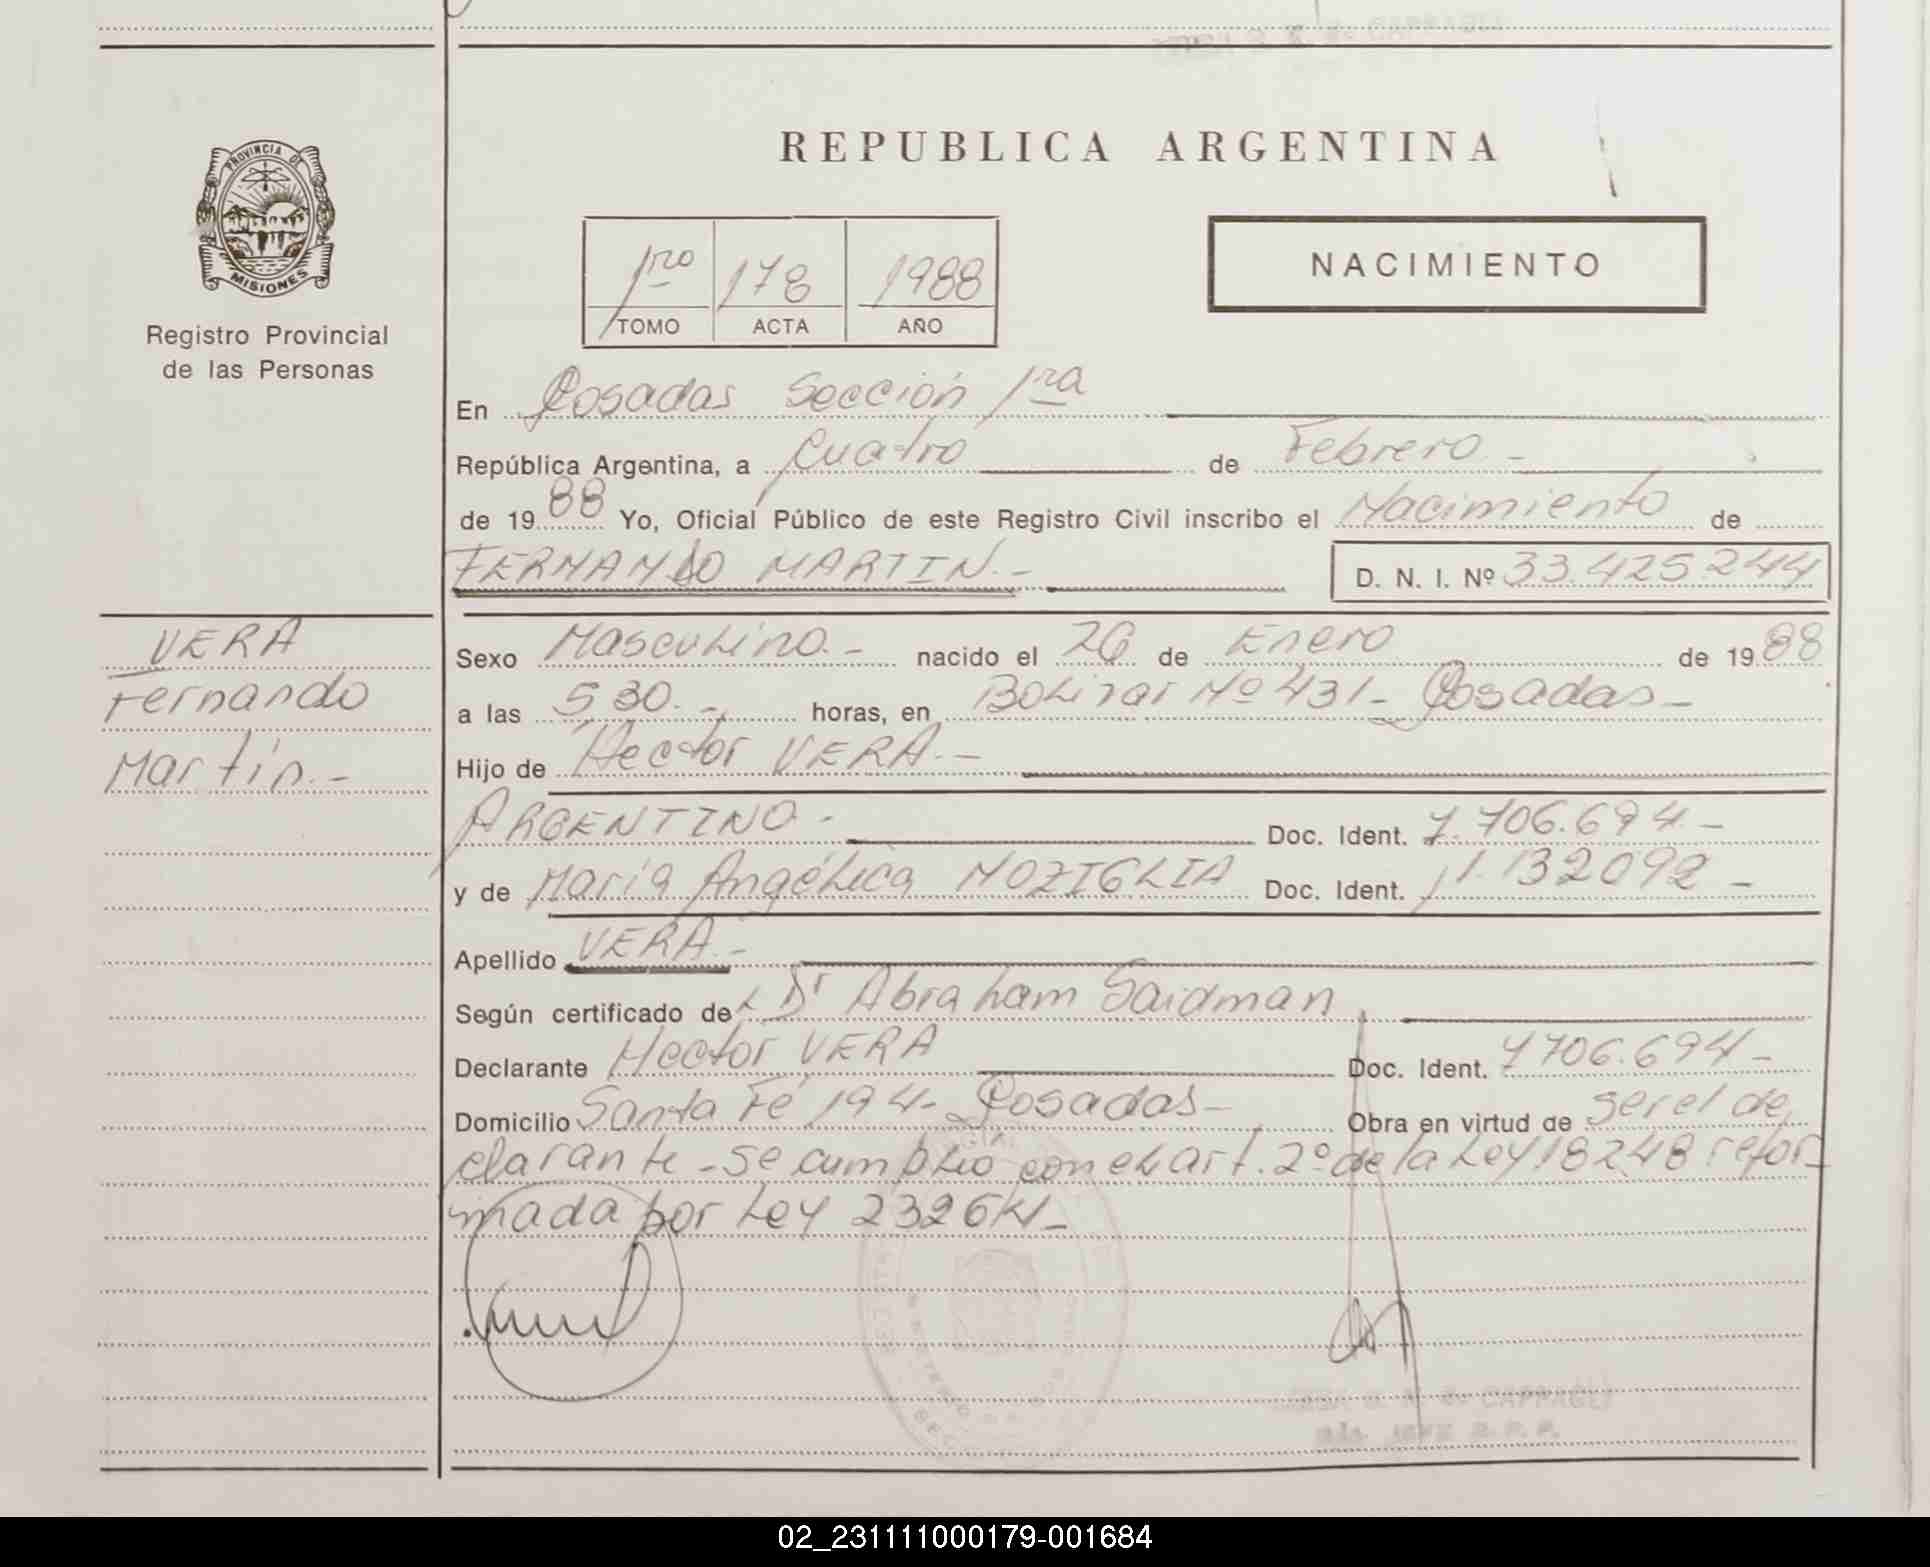 PROVINCIA DE
MISIONES
Registro Provincial
de las Personas
REPUBLICA ARGENTINA
1ro 178 1988
TOMO ACTA AÑO
NACIMIENTO
En Posadas Sección 1ra
República Argentina, a Cuatro de Febrero -
de 1988 Yo, Oficial Público de este Registro Civil inscribo el Nacimiento de
FERNANDO MARTIN.- D. N. I. Nº 33.425.244
VERA
Fernando
Martín.-
Sexo Masculino.- nacido el 26 de Enero de 1988
a las 5 30.- horas, en Bolivar Nº 431- Posadas-
Hijo de Hector VERA.-
ARGENTINO- Doc. Ident. 7.706.694-
y de María Angélica MOZIGLIA Doc. Ident. 11.132092-
Apellido VERA.-
Según certificado del Dr Abraham Saidman
Declarante Hector VERA Doc. Ident. 7706.694-
Domicilio Santa Fé 194- Posadas- Obra en virtud de ser el de
clarante - se cumplio con el art. 2º de la Ley 18248 refor-
mada por Ley 23264-
02_231111000179-001684